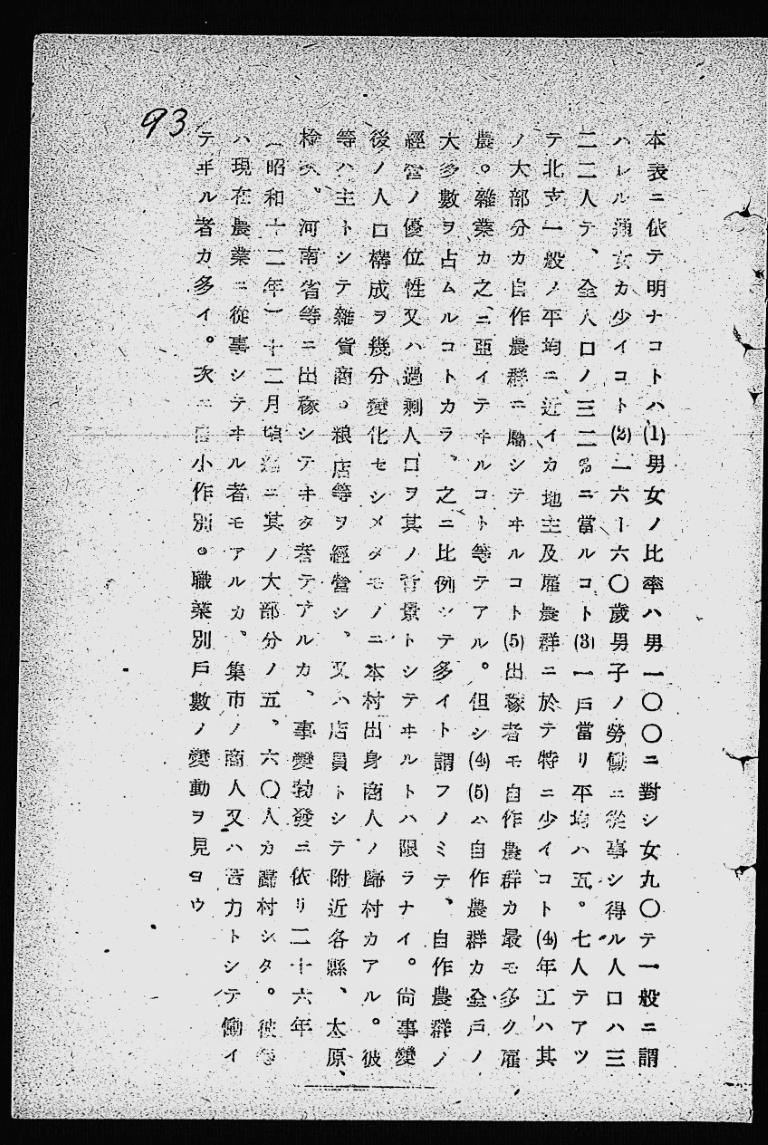 93
本表ニ依テ明ナコトハ(1)男女ノ比率ハ男一〇〇ニ對シ女九〇テ一般ニ謂
ハレル カ少イコト(2)一六—六〇歲男子ノ勞働ニ從事シ得ル人口ハ三
二二人テ、全人口ノ三二%ニ當ルコト(3)一戶當リ平均ハ五。七人テアツ
テ北支一般ノ平均ニ近イカ地主及雇農群ニ於テ特ニ少イコト(4)年工ハ其
ノ大部分カ自作農群ニ屬シテヰルコト(5)出稼者モ自作農群カ最モ多ク雇
農。雜業カ之ニ亞イテヰルコト等テアル。但シ(4)(5)ハ自作農群カ全戶ノ
大多數ヲ占ムルコトカラ、之ニ比例シテ多イト謂フノミテ、自作農群ノ
經營ノ優位性又ハ過剩人口ヲ其ノ背景トシテヰルトハ限ラナイ。尙事變
後ノ人口構成ヲ幾分變化セシメタモノニ本村出身商人ノ歸村カアル。彼
等ハ主トシテ雜貨商。粮店等ヲ經營シ、又ハ店員トシテ附近各縣、太原、
楡次、河南省等ニ出稼シテヰタ者テアルカ、事變勃發ニ依リ二十六年
(昭和十二年)十二月頃 ニ其ノ大部分ノ五、六〇人カ歸村シタ。彼等
ハ現在農業ニ從事シテヰル者モアルカ、集市ノ商人又ハ苦力トシテ働イ
テヰル者カ多イ。次ニ 小作別。職業別戶數ノ變動ヲ見ヨウ